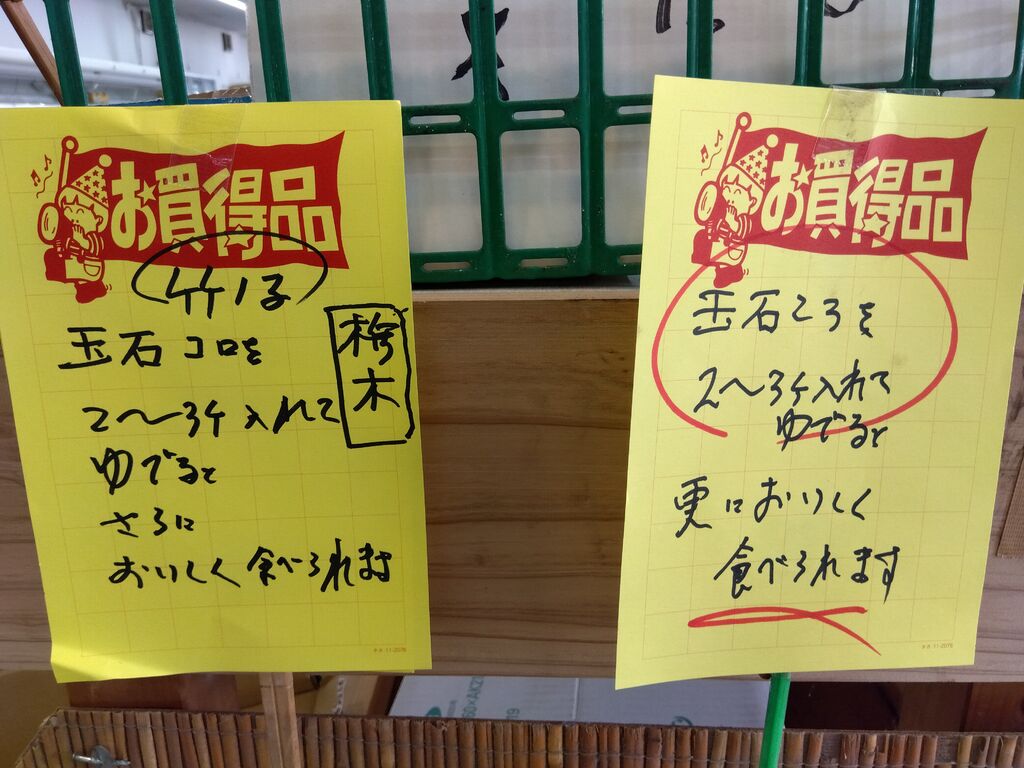 お買得品
竹ノ子
玉石コロを
2〜3ケ入れて
ゆでると
さらに
おいしく食べられます
木
ササ 11-2076
お買得品
玉石ころを
2〜3ケ入れて
ゆでると
更においしく
食べられます
ササ 11-2076